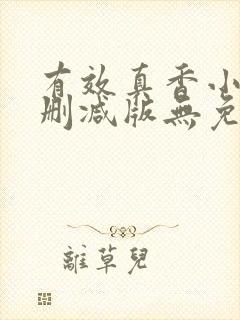 有效真香小
删减版無免
離草兒